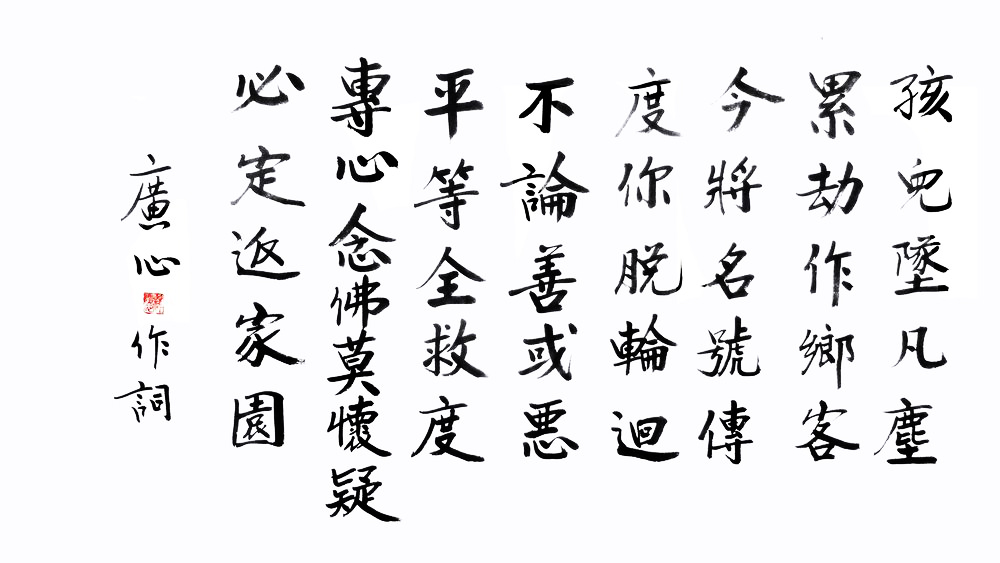 孩兒墜凡塵
累劫作鄉客
今將名號傳
度你脫輪迴
不論善或惡
平等全救度
專心念佛莫懷疑
必定返家園
廣心
作詞